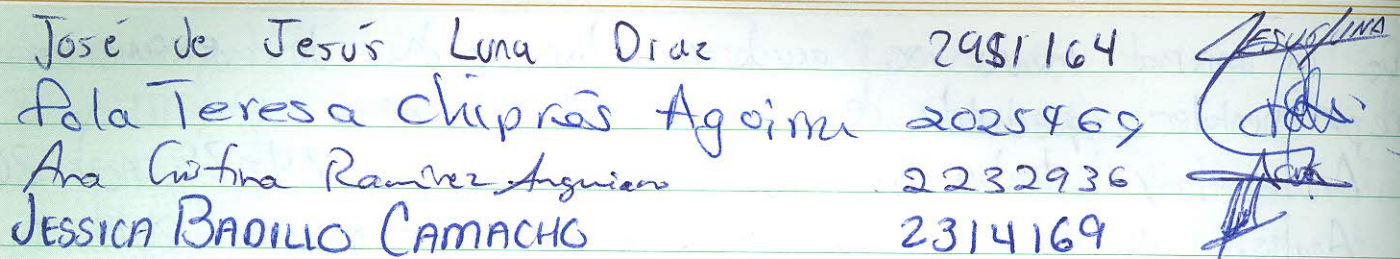 José de Jesús Luna Diaz 2951164 JESUS LUNA
Pola Teresa Chiprés Agoirre 2025469
Ana Cristina Ramírez Anguiano 2232936
JESSICA BADILLO CAMACHO 2314169